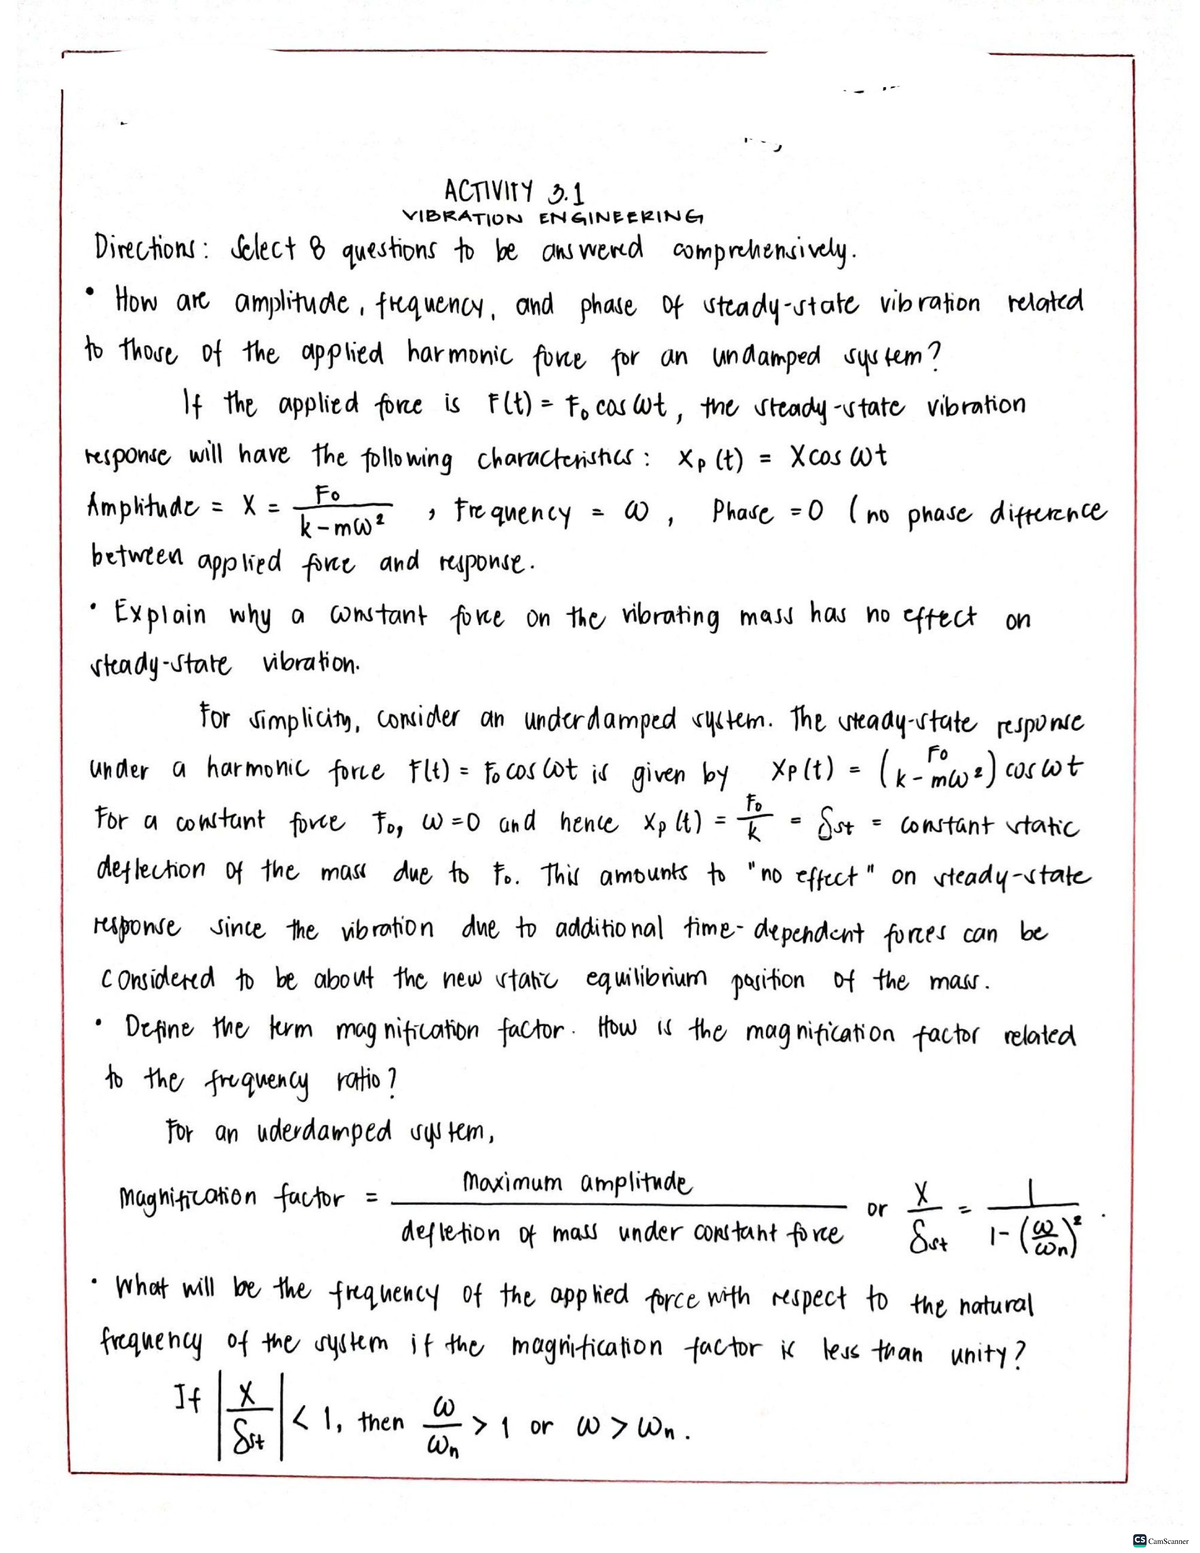 ACTIVITY 3.1
VIBRATION ENGINEERING
Directions: Select 8 questions to be answered comprehensively.
• How are amplitude, frequency, and phase of steady-state vibration related
to those of the applied harmonic force for an undamped system?
If the applied force is F(t) = F₀ cos ωt, the steady-state vibration
response will have the following characteristics: Xₚ(t) = X cos ωt
Amplitude = X = F₀ / (k - mω²), Frequency = ω, Phase = 0 (no phase difference
between applied force and response.
• Explain why a constant force on the vibrating mass has no effect on
steady-state vibration.
For simplicity, consider an underdamped system. The steady-state response
under a harmonic force F(t) = F₀ cos ωt is given by Xₚ(t) = (F₀ / k - mω²) cos ωt
For a constant force F₀, ω = 0 and hence Xₚ(t) = F₀/k = δst = constant static
deflection of the mass due to F₀. This amounts to "no effect" on steady-state
response since the vibration due to additional time-dependent forces can be
considered to be about the new static equilibrium position of the mass.
• Define the term magnification factor. How is the magnification factor related
to the frequency ratio?
For an uderdamped system,
Magnification factor = Maximum amplitude / defletion of mass under constant force or X/δst = 1 / 1-(ω/ωn)² .
• What will be the frequency of the applied force with respect to the natural
frequency of the system if the magnification factor is less than unity?
If |X/δst| < 1, then ω/ωn > 1 or ω > ωn.
CS CamScanner